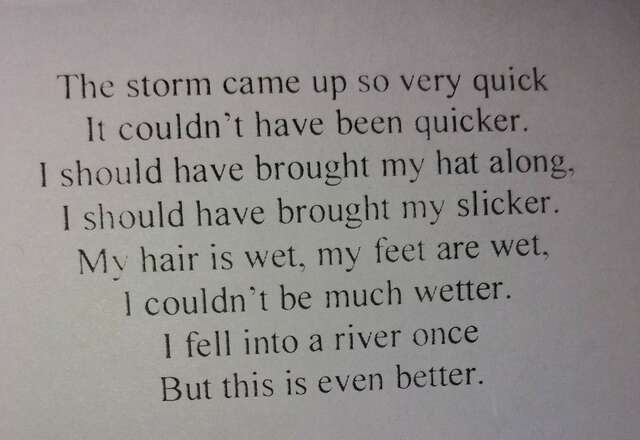 The storm came up so very quick
It couldn't have been quicker.
I should have brought my hat along,
I should have brought my slicker.
My hair is wet, my feet are wet,
I couldn't be much wetter.
I fell into a river once
But this is even better.